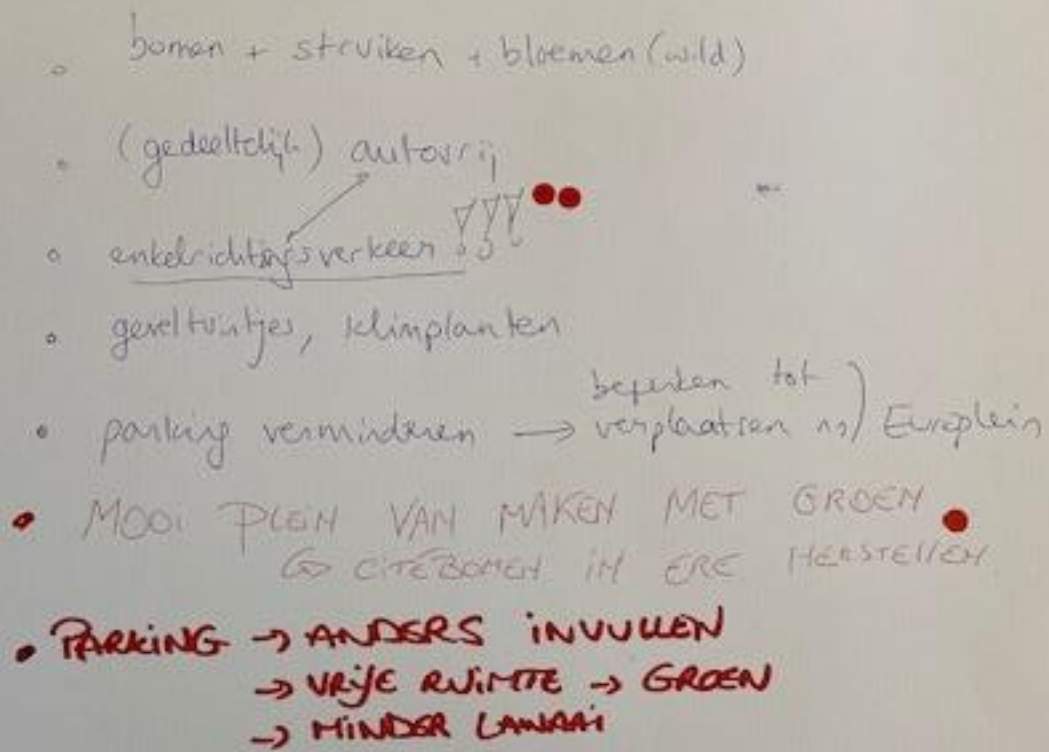 bomen + struiken + bloemen (wild)
(gedeeltelijk) autovrij
enkelrichtingsverkeer !!!
geveltuintjes, klimplanten
beperken tot
parking vermindere → verplaatsen n) Europlein
MOOI PLEIN VAN MAKEN MET GROEN
↳ CITÉBOMEN IN ERE HERSTELLEN
PARKING → ANDERS INVULLEN
→ VRIJE RUIMTE → GROEN
→ MINDER LAWAAI